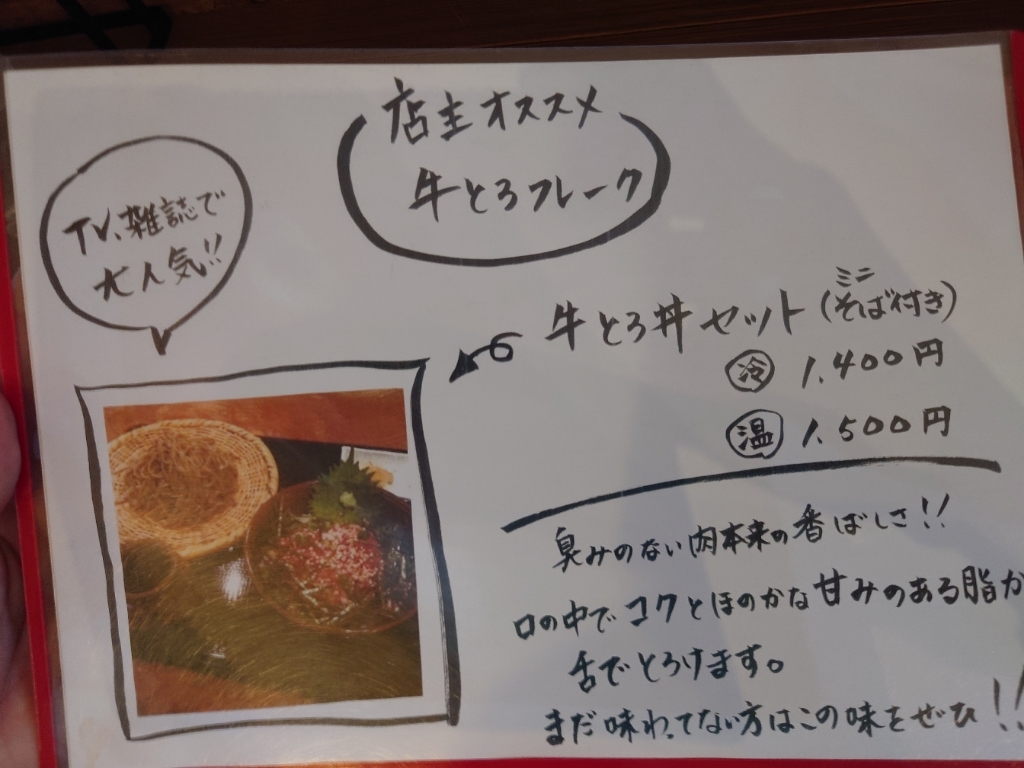 店主オススメ
牛とろフレーク
TV、雑誌で
大人気!!
牛とろ丼セット(ミニそば付き)
冷 1,400円
温 1,500円
臭みのない肉本来の香ばしさ!!
口の中でコクとほのかな甘みのある脂が
舌でとろけます。
まだ味わってない方はこの味をぜひ!!